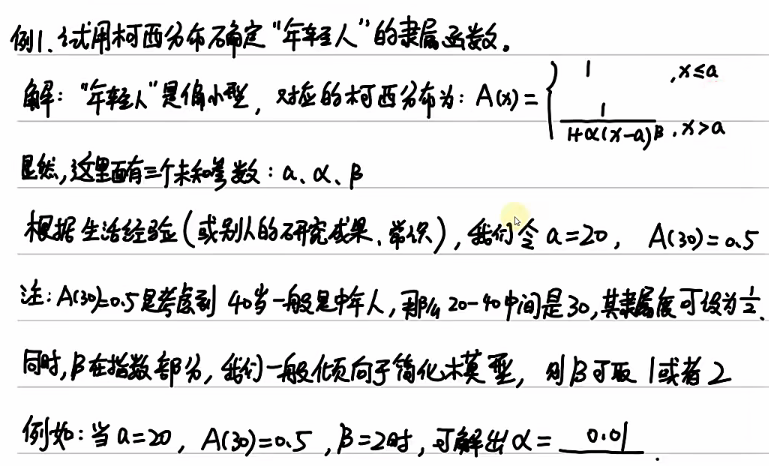 例1. 试用柯西分布确定“年轻人”的隶属函数。
解：“年轻人”是偏小型，对应的柯西分布为：A(x)={ 1 , x≤a
1/(1+α(x-a)^β) , x>a
显然,这里面有三个未知参数：a、α、β
根据生活经验(或别人的研究成果、常识)，我们令 a=20， A(30)=0.5
注：A(30)=0.5是考虑到 40岁一般是中年人，那么 20-40中间是30,其隶属度可设为1/2.
同时,β在指数部分，我们一般倾向于简化模型，则β可取 1或者 2
例如：当 a=20，A(30)=0.5，β=2时，可解出α= 0.01 .